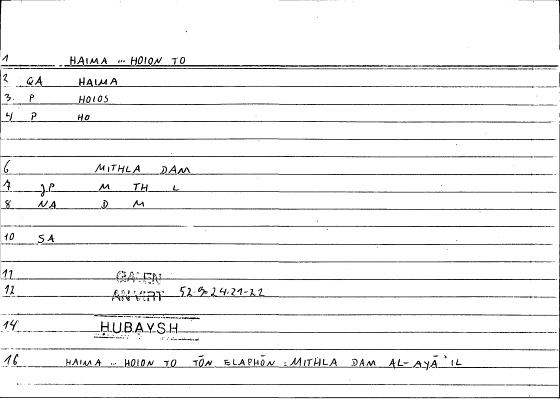 1 HAIMA ... HOION TO
2 QA HAIMA
3. P HOIOS
4 P HO
6 MITHLA DAM
7 JP M TH L
8 NA D M
10 SA
11 GALEN
12 AN VIRT 52.9 24.21-22
14 HUBAYSH
16 HAIMA ... HOION TO TŌN ELAPHŌN : MITHLA DAM AL-AYĀ'IL